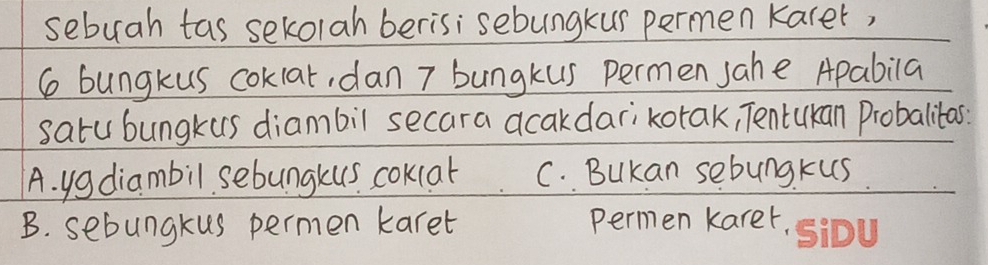 sebuah tas sekolah berisi sebungkus permen karet,
6 bungkus coklat, dan 7 bungkus permen jahe Apabila
satu bungkus diambil secara acak dari kotak, Tentukan Probalitas:
A. yg diambil sebungkus coklat C. Bukan sebungkus
B. sebungkus permen karet permen karet.
SiDU